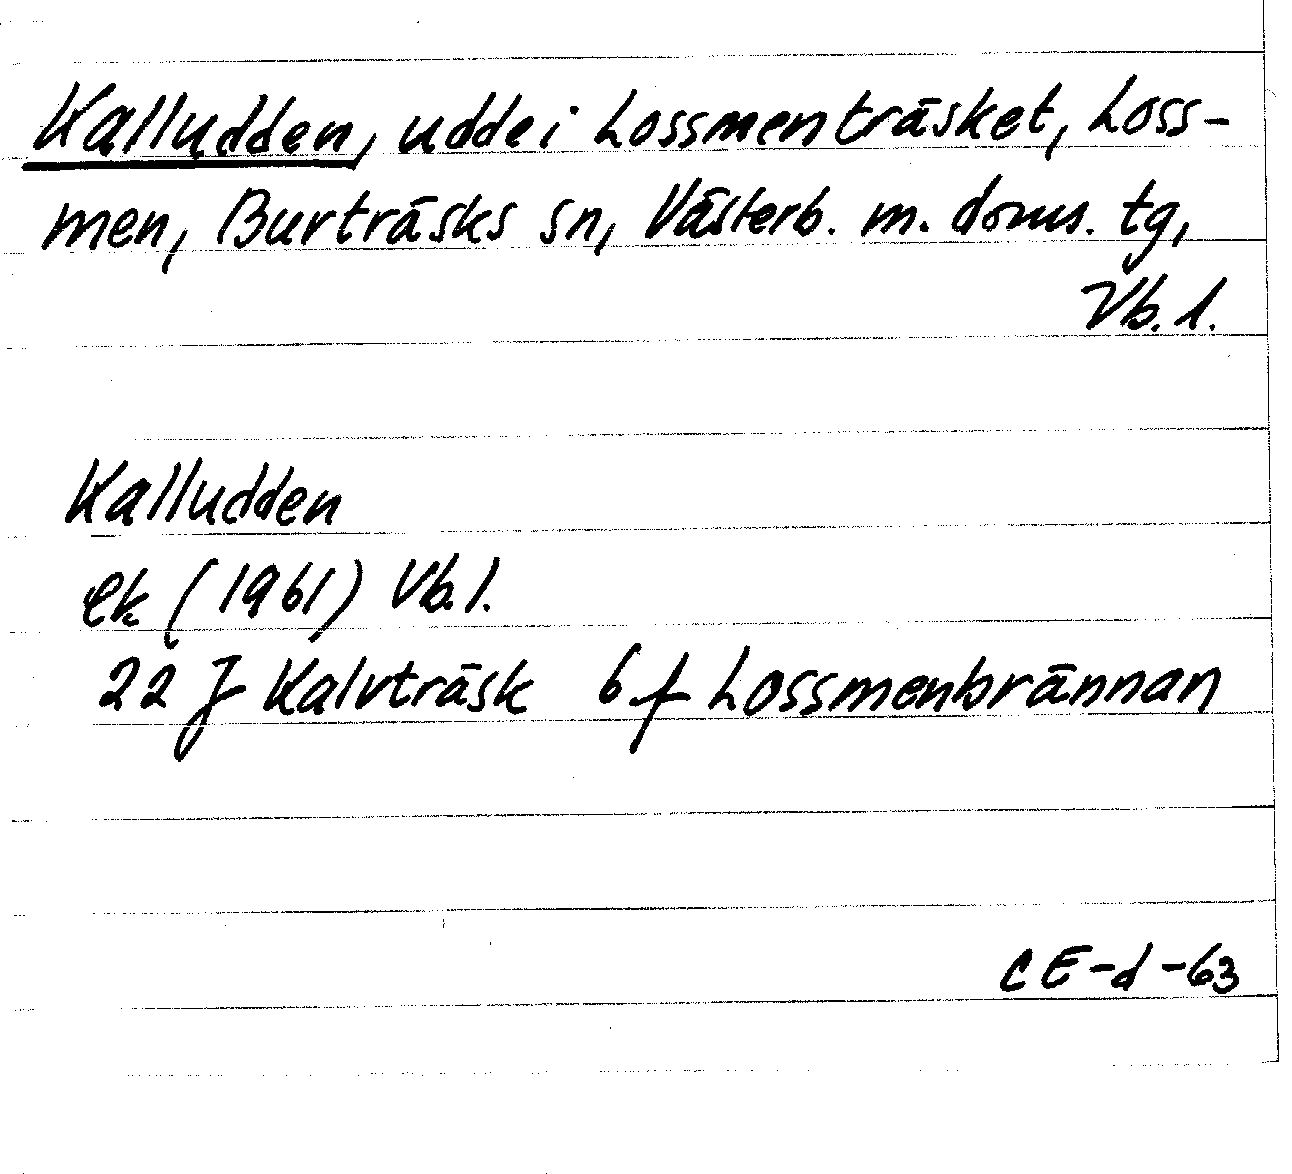 Kalludden, udde i Lossmenträsket, Loss-
men, Burträsks sn, Västerb. m. doms. tg,
Vb. l.
Kalludden
ek (1961) Vb. l.
22 J Kalvträsk 6 f Lossmenbrännan
CE-d-63